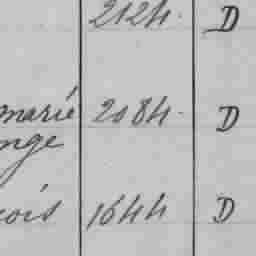 2124. D
marié 2084. D
nge
çois 1644 D